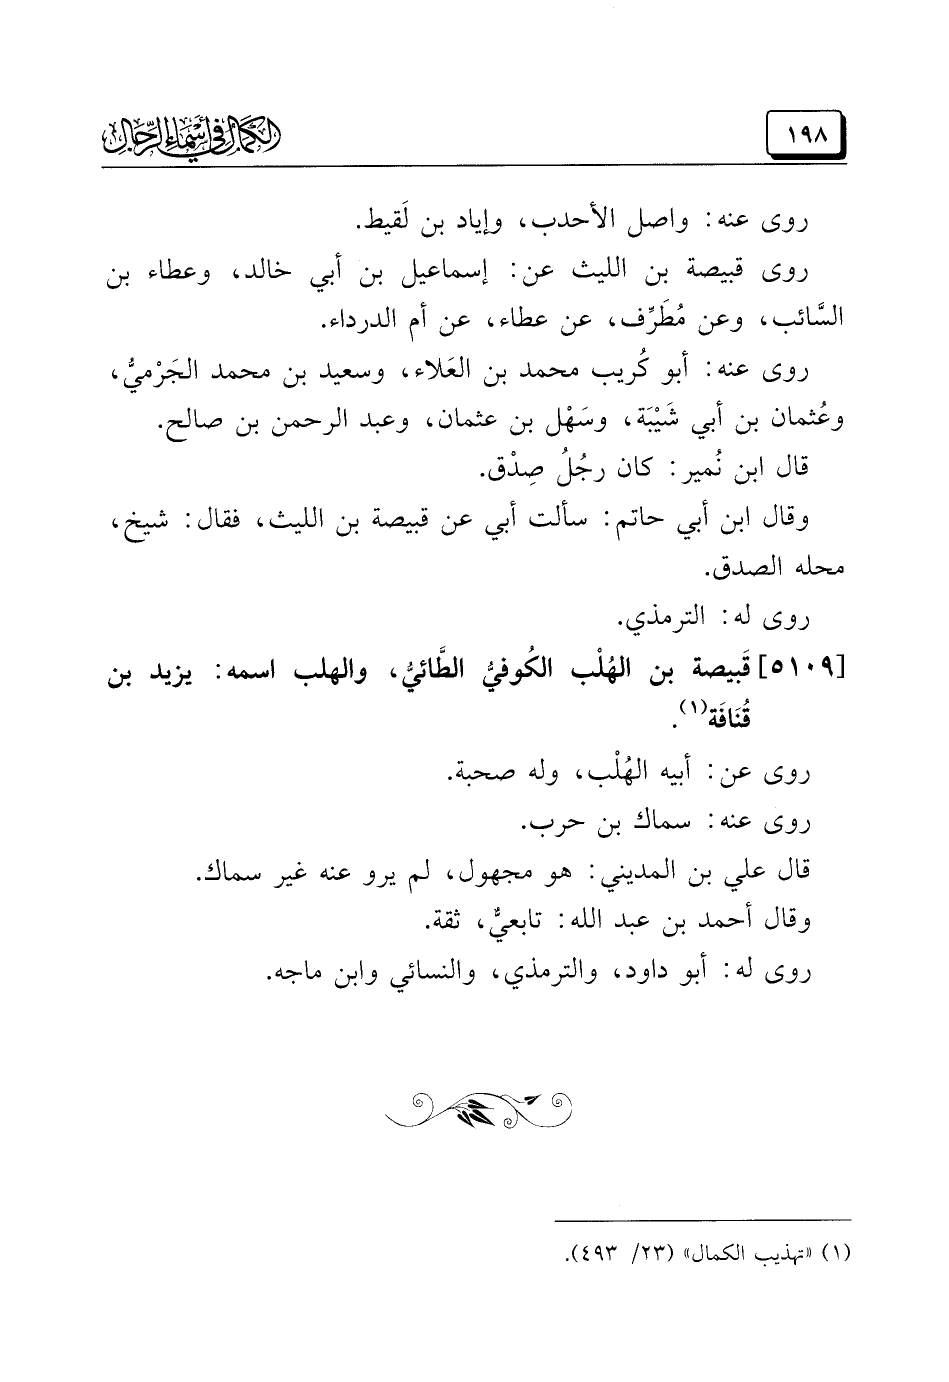 ١٩٨
الكمال في أسماء الرجال
روى عنه: واصل الأحدب، وإياد بن لَقيط.
روى قبيصة بن الليث عن: إسماعيل بن أبي خالد، وعطاء بن
السَّائب، وعن مُطَرِّف، عن عطاء، عن أم الدرداء.
روى عنه: أبو كُريب محمد بن العَلاء، وسعيد بن محمد الجَرْميُّ،
وعُثمان بن أبي شَيْبَة، وسَهْل بن عثمان، وعبد الرحمن بن صالح.
قال ابن نُمير: كان رجُلُ صِدْق.
وقال ابن أبي حاتم: سألت أبي عن قبيصة بن الليث، فقال: شيخ،
محله الصدق.
روى له: الترمذي.
[٥١٠٩] قَبيصة بن الهُلْب الكُوفيُّ الطَّائيُّ، والهلب اسمه: يزيد بن
قُنَافَة(١).
روى عن: أبيه الهُلْب، وله صحبة.
روى عنه: سماك بن حرب.
قال علي بن المديني: هو مجهول، لم يرو عنه غير سماك.
وقال أحمد بن عبد الله: تابعيٌّ، ثقة.
روى له: أبو داود، والترمذي، والنسائي وابن ماجه.
(١) «تهذيب الكمال» (٢٣/ ٤٩٣).